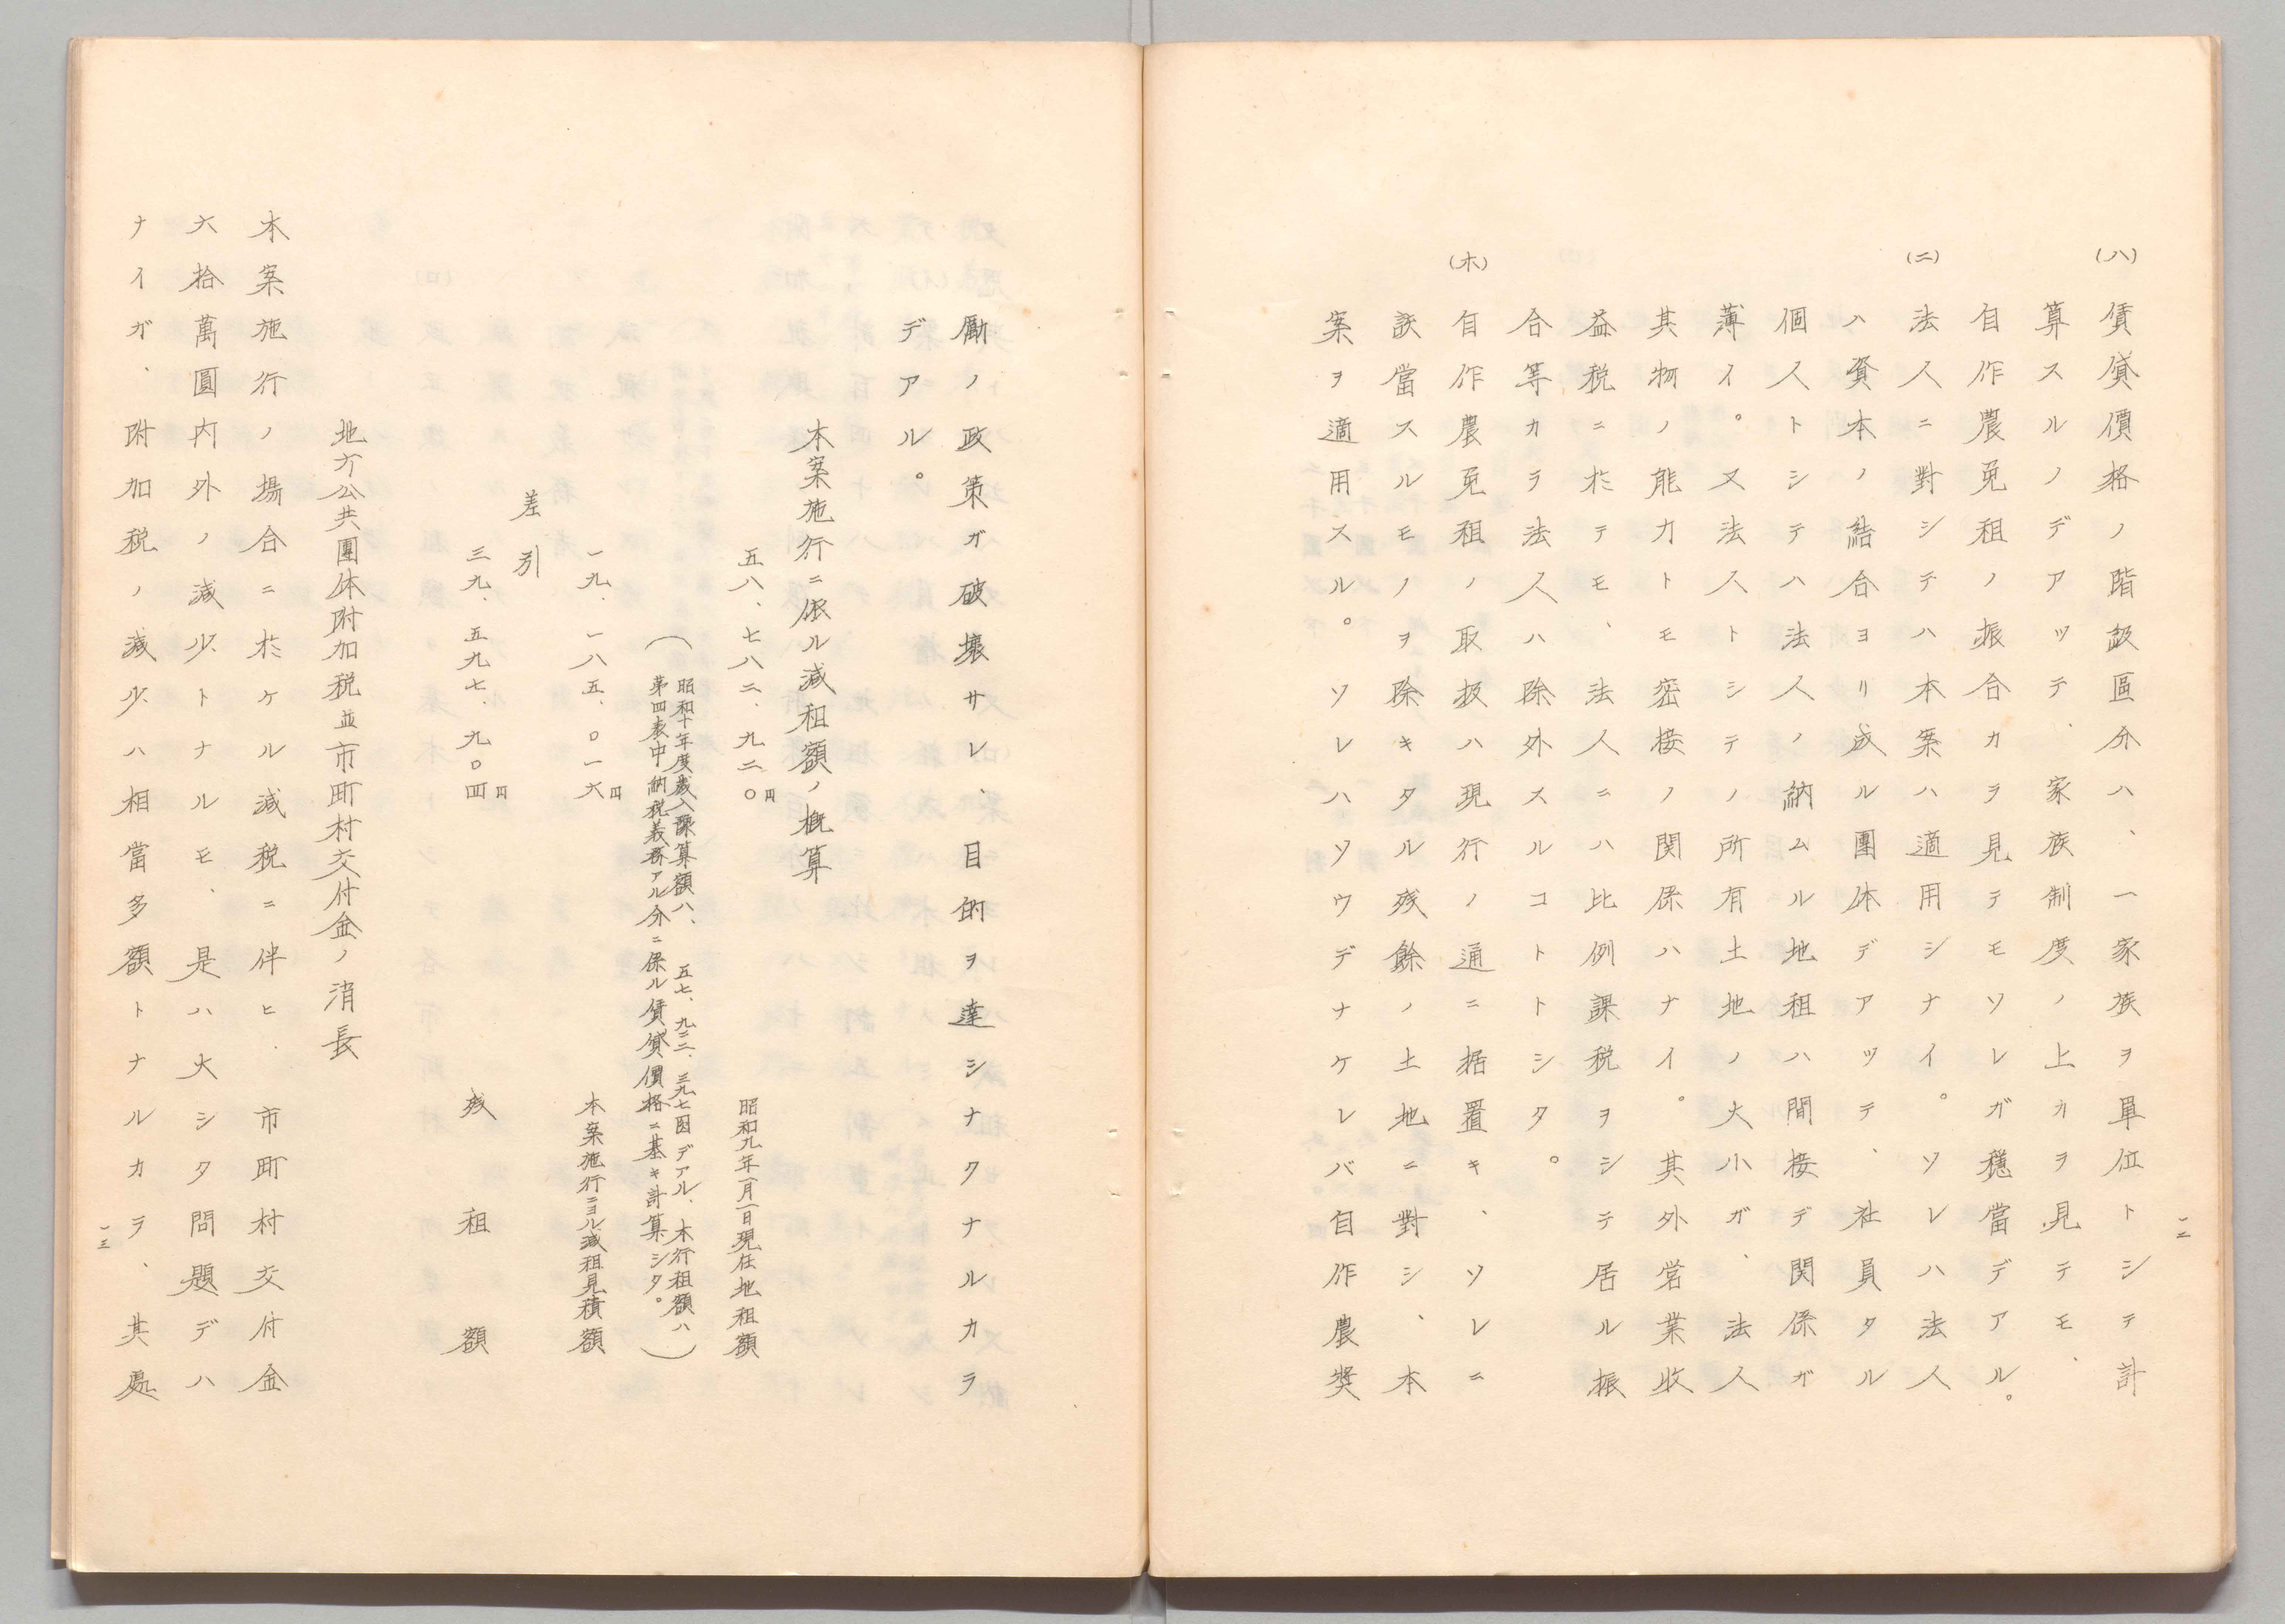 (ハ)
賃貸價格ノ階級區分ハ、一家族ヲ單位トシテ計
算スルノデアツテ、家族制度ノ上カラ見テモ、
自作農免租ノ振合カラ見テモソレガ穩當デアル。
(ニ)
法人ニ對シテハ本案ハ適用シナイ。ソレハ法人
ハ資本ノ結合ヨリ成ル團体デアツテ、社員タル
個人トシテハ法人ノ納ムル地租ハ間接デ関係ガ
薄イ。又法人トシテノ所有土地ノ大小ガ、法人
其物ノ能力トモ密接ノ関係ハナイ。其外営業收
益税ニ於テモ、法人ニハ比例課税ヲシテ居ル振
合等カラ法人ハ除外スルコトトシタ。
(ホ)
自作農免租ノ取扱ハ現行ノ通ニ据置キ、ソレニ
該當スルモノヲ除キタル残餘ノ土地ニ對シ、本
案ヲ適用スル。ソレハソウデナケレバ自作農奬
一二
勵ノ政策ガ破壞サレ、目的ヲ達シナクナルカラ
デアル。
本案施行ニ依ル減租額ノ概算
五八、七八二、九二〇円 昭和九年一月一日現在地租額
(昭和十年度歳入豫算額ハ、五七、九三二、三九七圓デアル、本行租額ハ
第四表中納税義務アル分ニ係ル賃貸價格ニ基キ計算シタ。)
一九、一八五、〇一六円 本案施行ニヨル減租見積額
差引
三九、五九七、九〇四円 残租額
地方公共團体附加税並市町村交付金ノ消長
本案施行ノ場合ニ於ケル減税ニ伴ヒ、市町村交付金
六拾萬圓内外ノ減少トナルモ、是ハ大シタ問題デハ
ナイガ、附加税ノ減少ハ相當多額トナルカラ、其處
一三